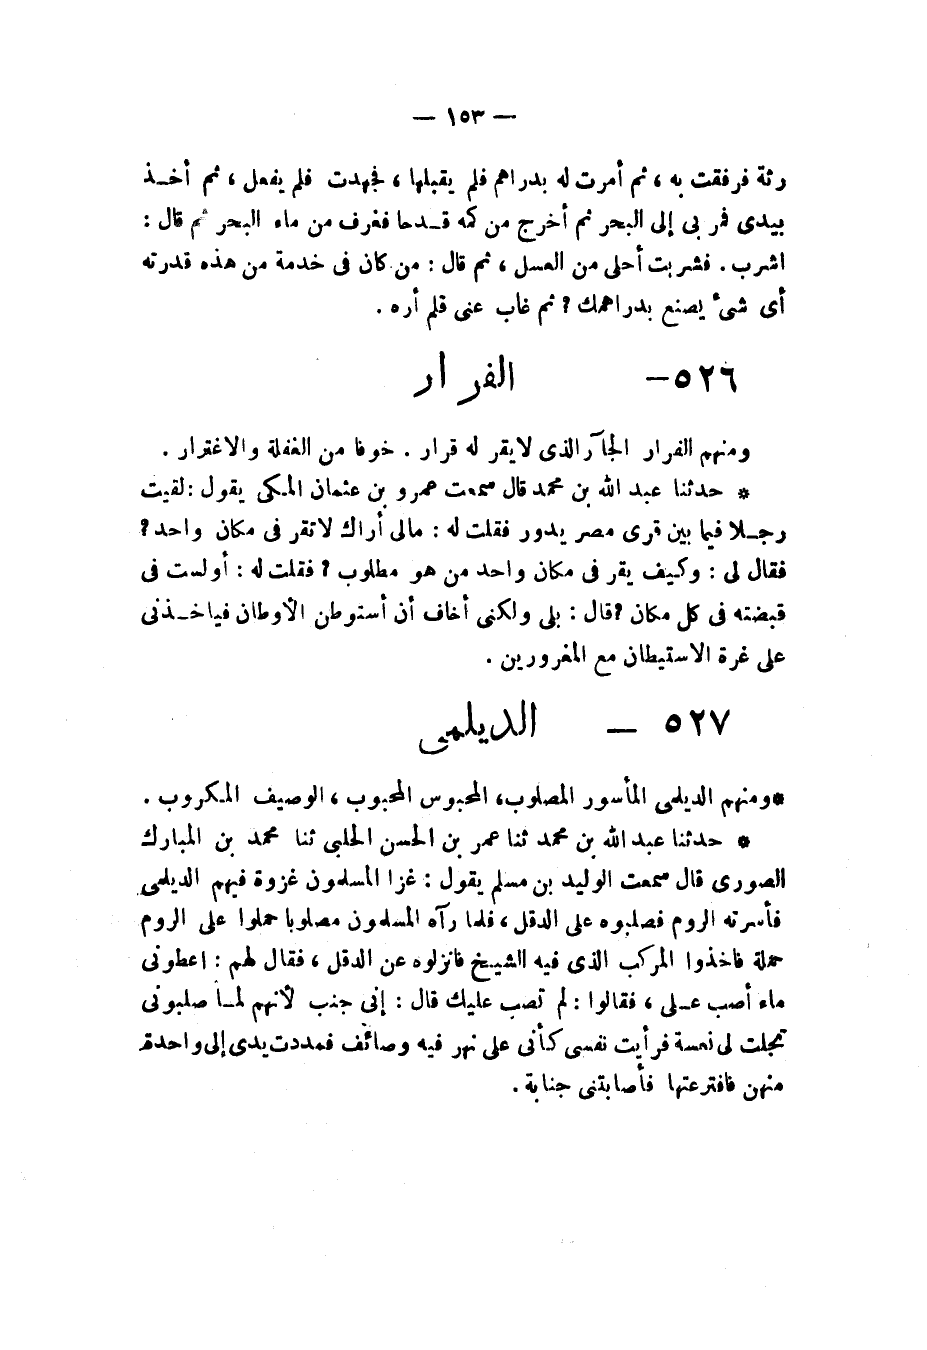 — ١٥٣ —
رثة فرفقت به ، ثم أمرت له بدراهم فلم يقبلها ، فجهدت فلم يفعل ، ثم أخـذ
بيدى فمر بى إلى البحر ثم أخرج من كمه قـدحا فغرف من ماء البحر ثم قال :
اشرب . فشربت أحلى من العسل ، ثم قال : من كان فى خدمة من هذه قدرته
أى شىء يصنع بدراهمك ؟ ثم غاب عنى فلم أره .
٥٢٦ — الفرار
ومنهم الفرار الجآر الذى لا يقر له قرار . خوفا من الغفلة والاغترار .
* حدثنا عبد الله بن محمد قال سمعت عمرو بن عثمان المكى يقول : لقيت
رجـلا فيما بين قرى مصر يدور فقلت له : مالى أراك لا تقر فى مكان واحد ؟
فقال لى : وكيف يقر فى مكان واحد من هو مطلوب ؟ فقلت له : أولست فى
قبضته فى كل مكان ؟ قال : بلى ولكنى أخاف أن أستوطن الأوطان فياخـذنى
على غرة الاستيطان مع المغرورين .
٥٢٧ — الديلمى
* ومنهم الديلمى المأسور المصلوب، المحبوس المحبوب ، الوصيف المكروب .
* حدثنا عبد الله بن محمد ثنا عمر بن الحسن الحلبى ثنا محمد بن المبارك
الصورى قال سمعت الوليد بن مسلم يقول : غزا المسلمون غزوة فيهم الديلمى
فأسرته الروم فصلبوه على الدقل ، فلما رآه المسلمون مصلوبا حملوا على الروم
حملة فاخذوا المركب الذى فيه الشيخ فانزلوه عن الدقل ، فقال لهم : اعطونى
ماء أصب عـلى ، فقالوا : لم تصب عليك قال : إنى جنب لأنهم لمـا صلبونى
تجلت لى نعسة فرأيت نفسى كأنى على نهر فيه وصائف فمددت يدى إلى واحدة
منهن فافترعتها فأصابتنى جنابة .